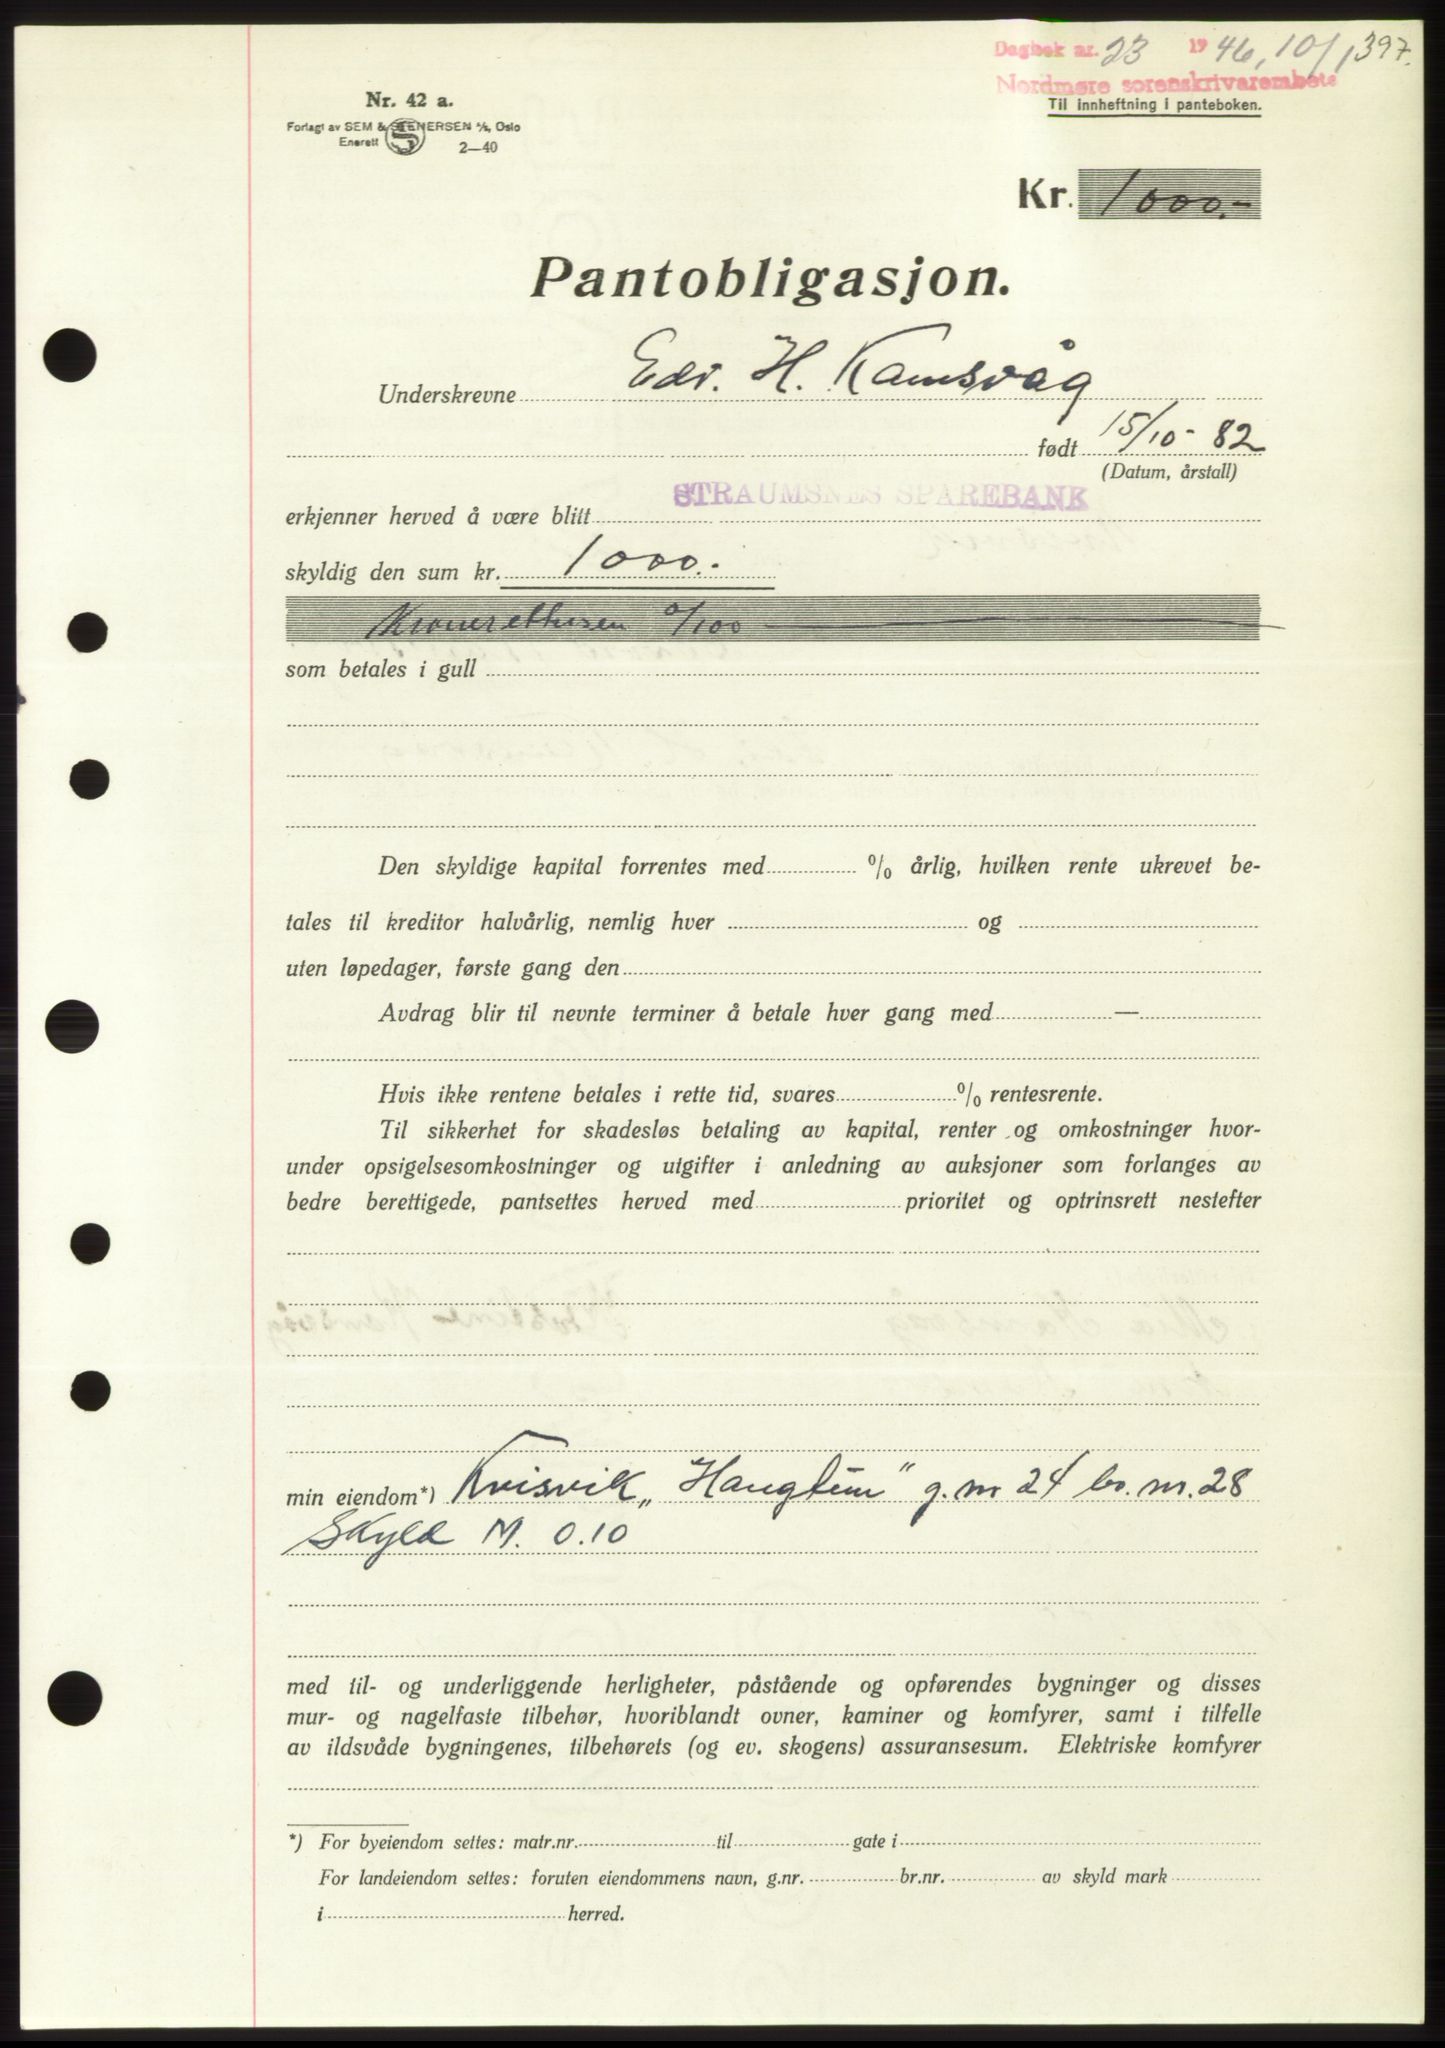 Dagbok nr. 23 1946, 10/1 397.
Nordmøre sorenskrivarembete
Til innheftning i panteboken.
Nr. 42 a.
Forlagt av SEM & STENERSEN A/S, Oslo
Enerett 2—40
Kr. 1000.-
Pantobligasjon.
Underskrevne Edv. H. Kamsvåg
født 15/10-82
(Datum, årstall)
erkjenner herved å være blitt STRAUMSNES SPAREBANK
skyldig den sum kr. 1000.-
Kroner ettusen 0/100
som betales i gull
Den skyldige kapital forrentes med % årlig, hvilken rente ukrevet be-
tales til kreditor halvårlig, nemlig hver og
uten løpedager, første gang den
Avdrag blir til nevnte terminer å betale hver gang med —
Hvis ikke rentene betales i rette tid, svares % rentesrente.
Til sikkerhet for skadesløs betaling av kapital, renter og omkostninger hvor-
under opsigelsesomkostninger og utgifter i anledning av auksjoner som forlanges av
bedre berettigede, pantsettes herved med prioritet og optrinsrett nestefter
min eiendom*) Kvisvik „Haugtun" g.nr 24 br.nr.28
Skyld M. 0.10
med til- og underliggende herligheter, påstående og opførendes bygninger og disses
mur- og nagelfaste tilbehør, hvoriblandt ovner, kaminer og komfyrer, samt i tilfelle
av ildsvåde bygningenes, tilbehørets (og ev. skogens) assuransesum. Elektriske komfyrer
*) For byeiendom settes: matr.nr. til gate i
For landeiendom settes: foruten eiendommens navn, g.nr. br.nr. av skyld mark
i herred.